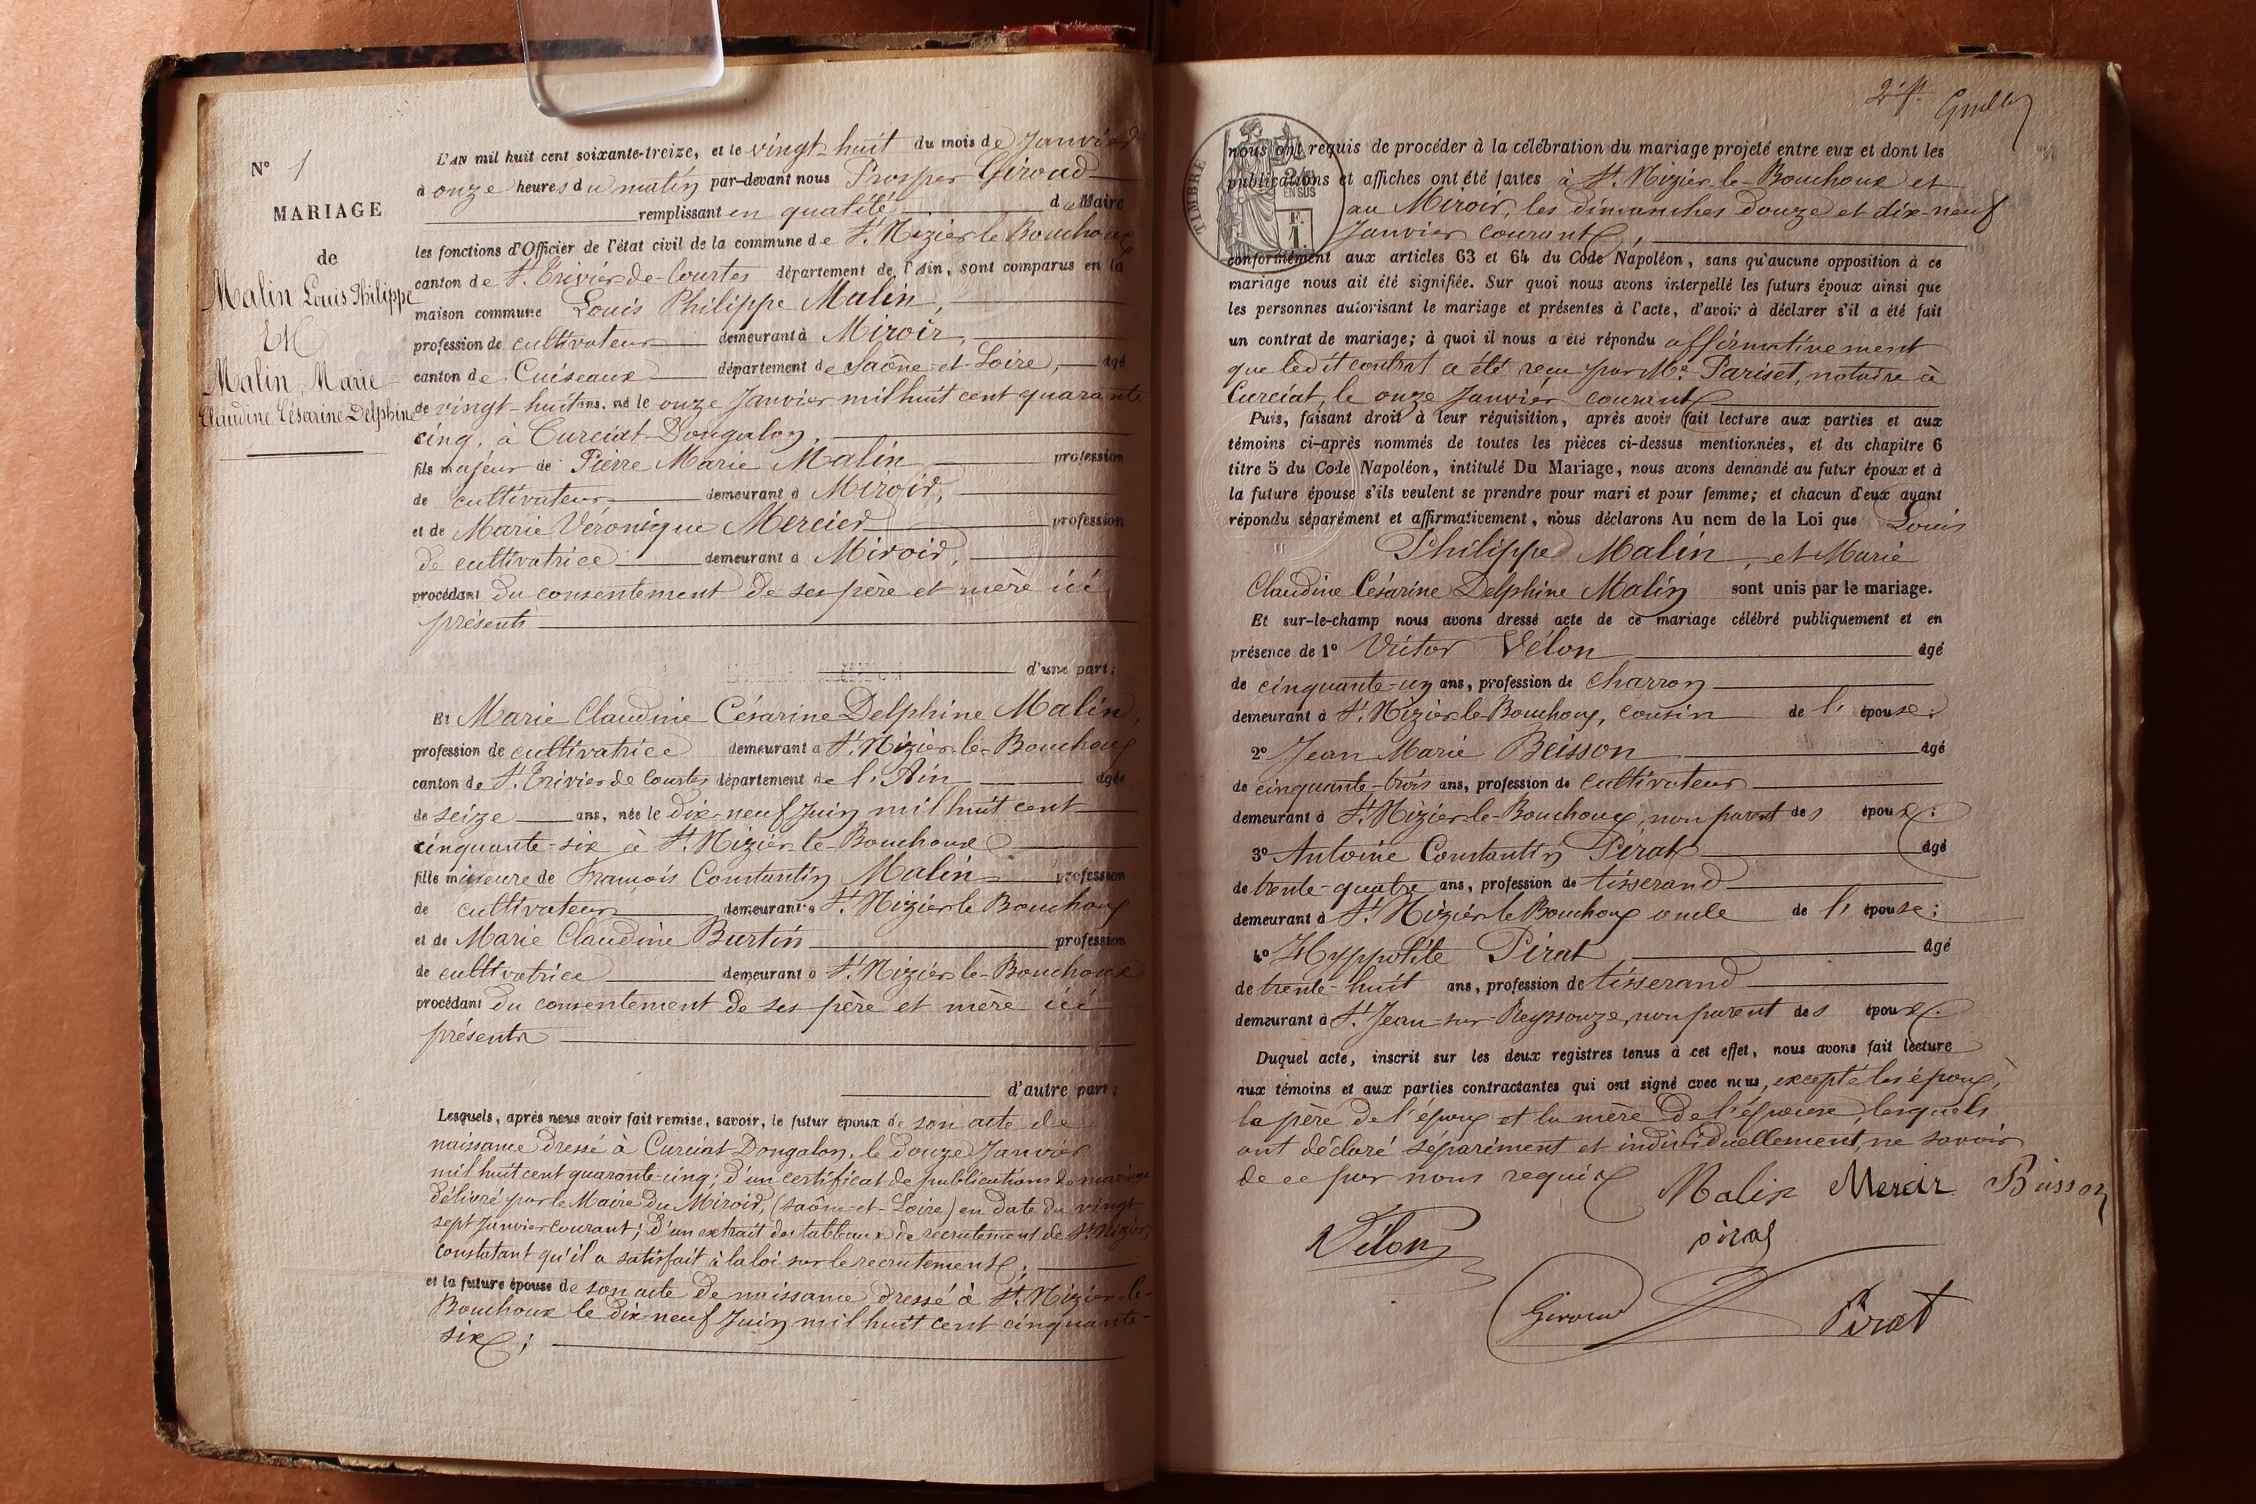 N° 1
MARIAGE
de
Malin Louis Philippe
Et
Malin, Marie
Claudine Césarine Delphine
L'AN mil huit cent soixante-treize, et le vingt-huit du mois de Janvier
à onze heures du matin par-devant nous Prosper Giroud
remplissant en qualité de Maire
les fonctions d'Officier de l'état civil de la commune de St. Nizier le Bouchoux
canton de St. Trivier-de-Courtes département de l'Ain, sont comparus en la
maison commune Louis Philippe Malin,
profession de cultivateur demeurant à Miroir,
canton de Cuiseaux département de Saône-et-Loire, âgé
de vingt-huit ans, né le onze Janvier mil huit cent quarante
cinq, à Curciat-Dongalon,
fils majeur de Pierre Marie Malin profession
de cultivateur demeurant à Miroir,
et de Marie Véronique Mercier profession
de cultivatrice demeurant à Miroir,
procédant du consentement de ses père et mère ici
présents
d'une part;
Et Marie Claudine Césarine Delphine Malin,
profession de cultivatrice demeurant à St. Nizier-le-Bouchoux
canton de St. Trivier de Courtes département de l'Ain âgée
de seize ans, née le dix-neuf Juin mil huit cent
cinquante-six à St. Nizier-le-Bouchoux
fille mineure de François Constantin Malin profession
de cultivateur demeurant à St. Nizier le Bouchoux
et de Marie Claudine Burtin profession
de cultivatrice demeurant à St. Nizier-le-Bouchoux
procédant du consentement de ses père et mère ici
présents
d'autre part;
Lesquels, après nous avoir fait remise, savoir, le futur époux de son acte de
naissance dressé à Curciat-Dongalon, le douze Janvier
mil huit cent quarante-cinq; d'un certificat de publications de mariage
délivré par le Maire du Miroir, (Saône-et-Loire) en date du vingt-
sept Janvier courant; d'un extrait des tableaux de recrutement de St. Nizier
constatant qu'il a satisfait à la loi sur le recrutement;
et la future épouse de son acte de naissance dressé à St. Nizier-le-
Bouchoux le dix-neuf Juin mil huit cent cinquante-
six;
2e f.
TIMBRE
2/10
EN SUS
F.
1.
nous ont requis de procéder à la célébration du mariage projeté entre eux et dont les
publications et affiches ont été faites à St. Nizier-le-Bouchoux et
au Miroir, les dimanches douze et dix-neuf
Janvier courant,
conformément aux articles 63 et 64 du Code Napoléon, sans qu'aucune opposition à ce
mariage nous ait été signifiée. Sur quoi nous avons interpellé les futurs époux ainsi que
les personnes autorisant le mariage et présentes à l'acte, d'avoir à déclarer s'il a été fait
un contrat de mariage; à quoi il nous a été répondu affirmativement
que ledit contrat a été reçu par Me. Pariset, notaire à
Curciat, le onze Janvier courant
Puis, faisant droit à leur réquisition, après avoir fait lecture aux parties et aux
témoins ci-après nommés de toutes les pièces ci-dessus mentionnées, et du chapitre 6
titre 5 du Code Napoléon, intitulé Du Mariage, nous avons demandé au futur époux et à
la future épouse s'ils veulent se prendre pour mari et pour femme; et chacun d'eux ayant
répondu séparément et affirmativement, nous déclarons Au nom de la Loi que Louis
Philippe Malin, et Marie
Claudine Césarine Delphine Malin sont unis par le mariage.
Et sur-le-champ nous avons dressé acte de ce mariage célébré publiquement et en
présence de 1° Victor Vélon âgé
de cinquante-un ans, profession de charron
demeurant à St. Nizier le Bouchoux, cousin de l' épouse;
2° Jean Marie Beisson âgé
de cinquante-trois ans, profession de cultivateur
demeurant à St. Nizier-le-Bouchoux, non parent des époux;
3° Antoine Constantin Pirat âgé
de trente-quatre ans, profession de tisserand
demeurant à St. Nizier le Bouchoux oncle de l' épouse;
4° Hyppolite Pirat âgé
de trente-huit ans, profession de tisserand
demeurant à St. Jean-sur-Reyssouze, non parent des époux.
Duquel acte, inscrit sur les deux registres tenus à cet effet, nous avons fait lecture
aux témoins et aux parties contractantes qui ont signé avec nous, excepté les époux,
le père de l'époux et la mère de l'épouse, lesquels
ont déclaré séparément et individuellement, ne savoir
de ce par nous requis
Malin Mercir Buisson
Vélon pirat
Giroud Pirat